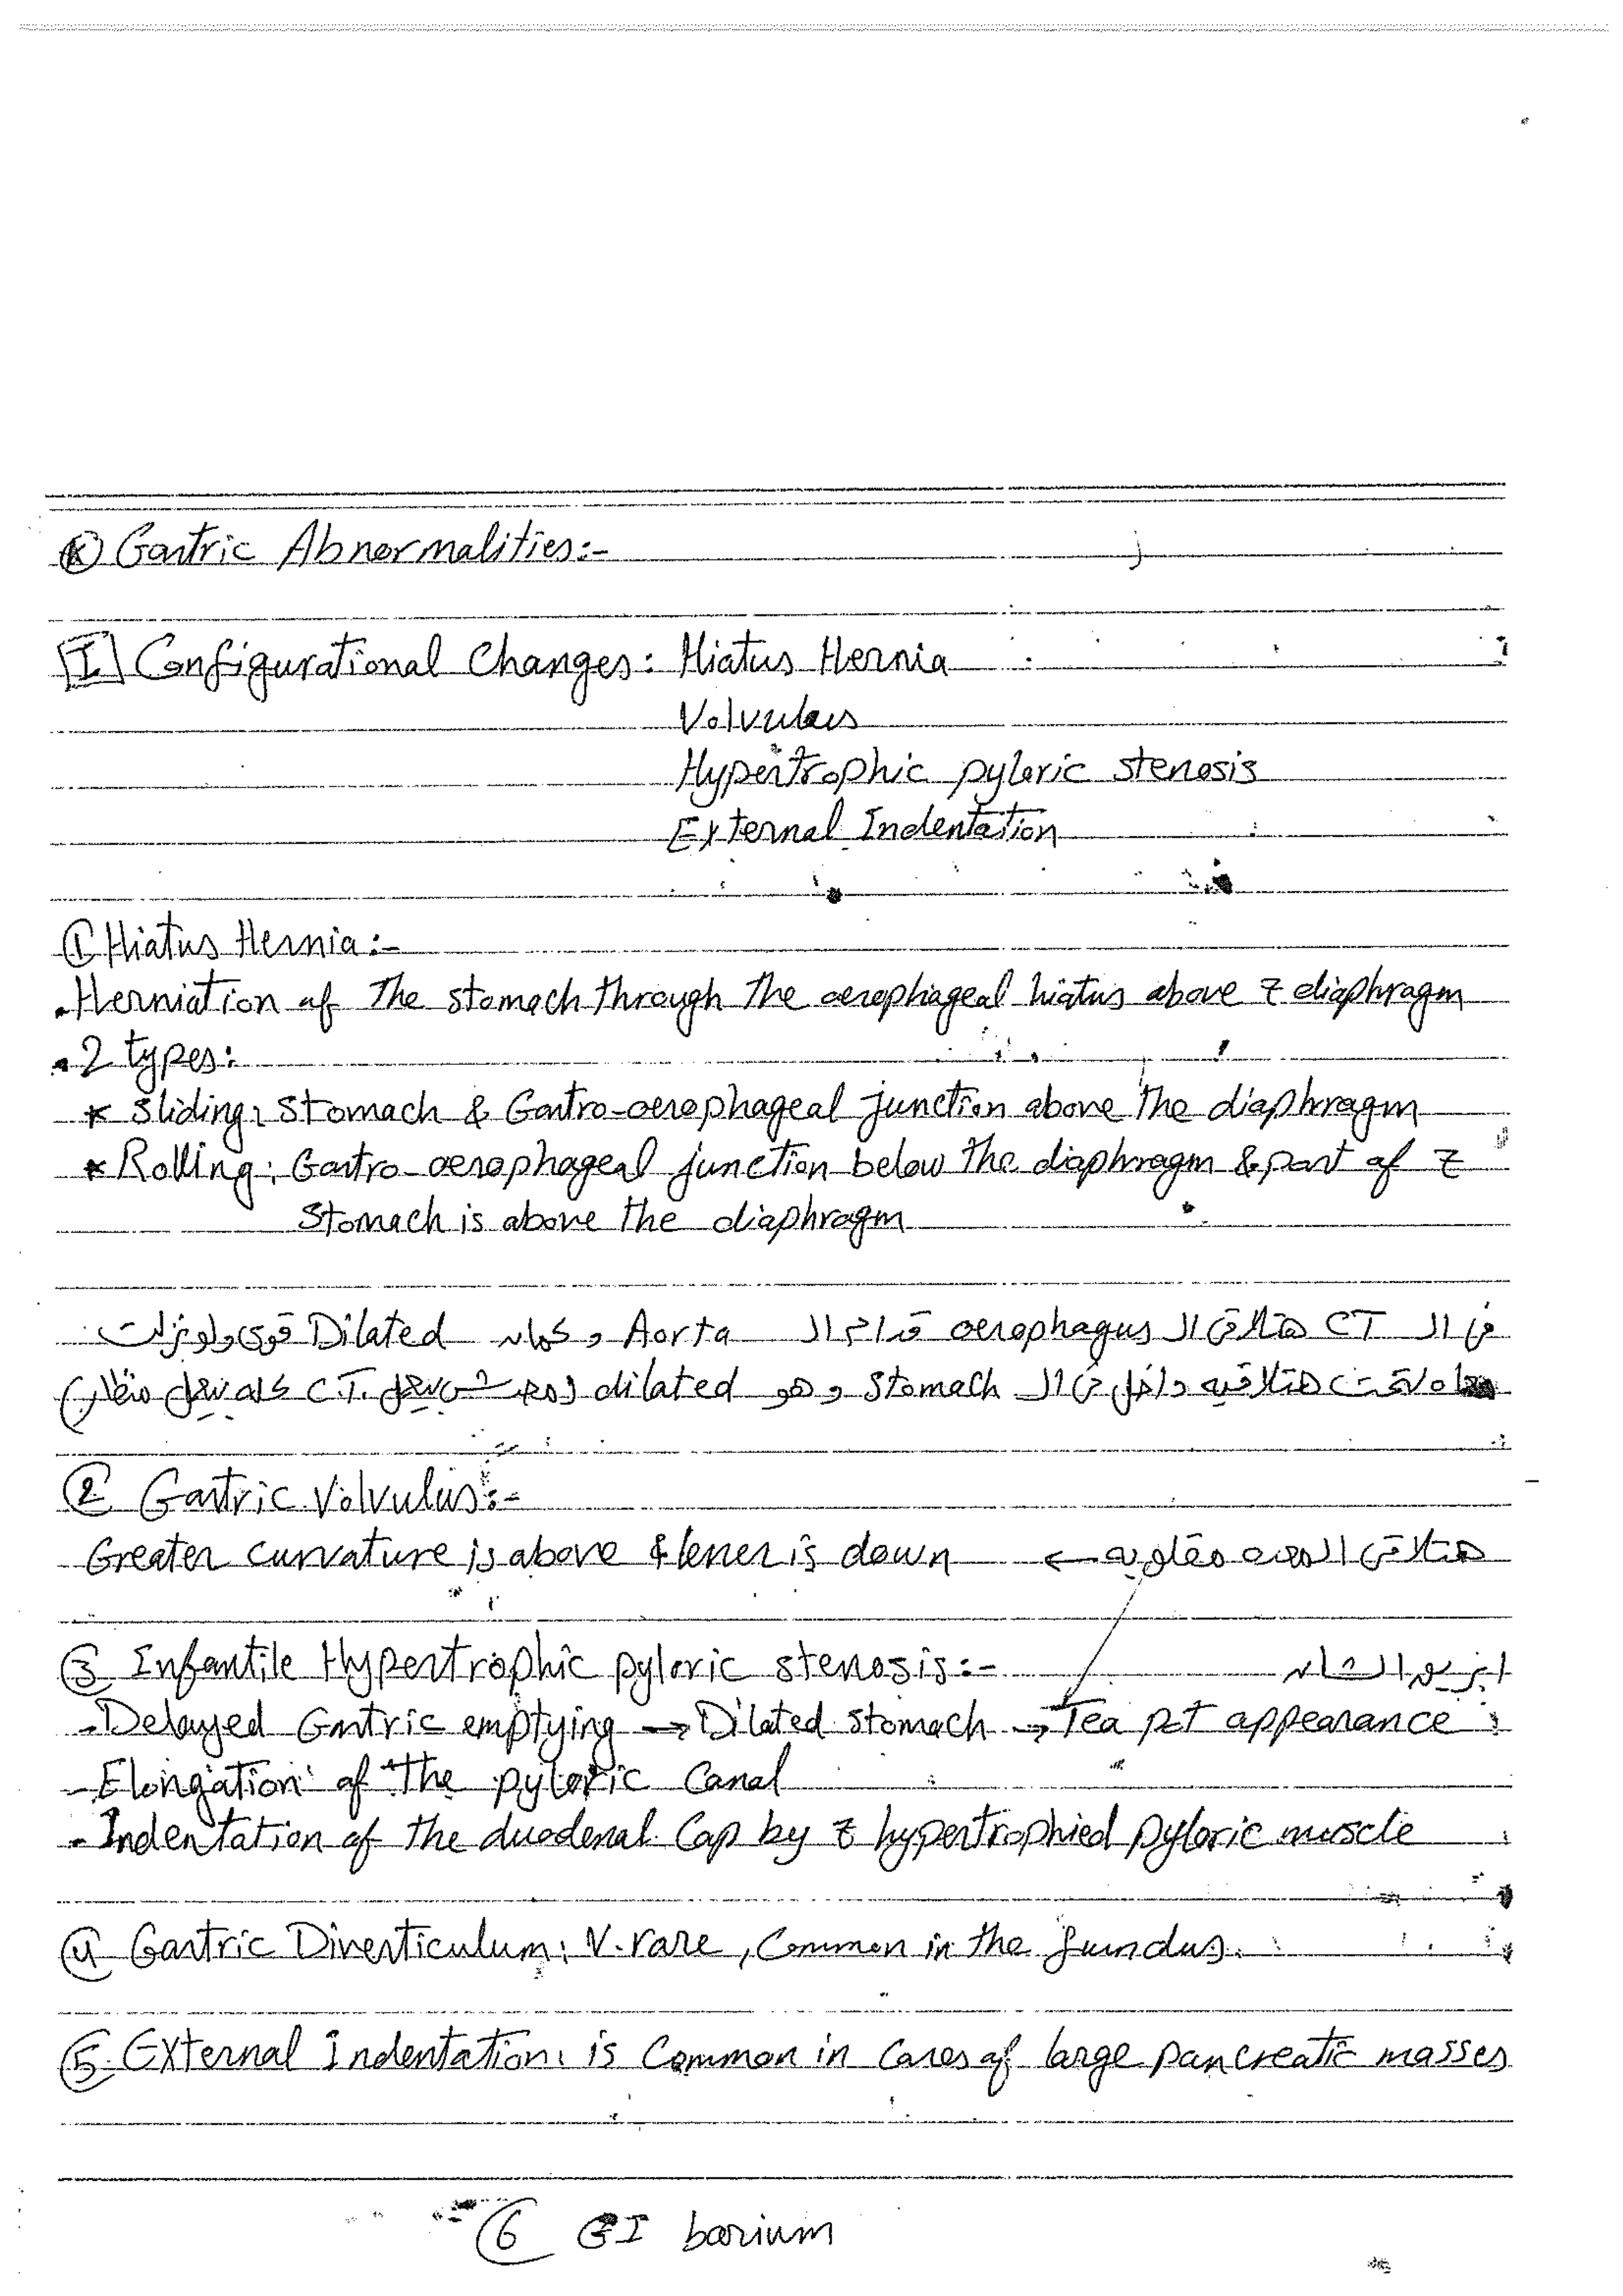 Ⓚ Gastric Abnormalities:-
[I] Configurational Changes: Hiatus Hernia
Volvulus
Hypertrophic pyloric stenosis
External Indentation
① Hiatus Hernia:-
. Herniation of The stomach through The oesophageal hiatus above z diaphragm
. 2 types:
* Sliding: Stomach & Gastro-oesophageal junction above The diaphragm
* Rolling: Gastro-oesophageal junction below The diaphragm & part of z
Stomach is above the diaphragm
في ال CT هتلاقي ال oesophagus قدام ال Aorta و كمان Dilated قوي ولو نزلت
تحت هتلاقيه داخل في ال Stomach و هو dilated (مش بنعمل C.T. كله بيعمل منظار)
② Gastric Volvulus:-
Greater curvature is above & lesser is down ← هتلاقي المعدة مقلوبة
③ Infantile Hypertrophic pyloric stenosis:-
- Delayed Gastric emptying → Dilated stomach → Tea pot appearance
- Elongation of the pyloric Canal
- Indentation of the duodenal Cap by z hypertrophied pyloric muscle
④ Gastric Diverticulum: V.rare, Common in the fundus.
⑤ External Indentation: is Common in Cases of large pancreatic masses
⑥ GI barium